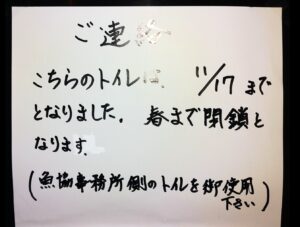 ご連絡
こちらのトイレは、 11/17 まで
となりました。 春まで閉鎖と
なります。
(魚協事務所側のトイレを御使用
下さい)